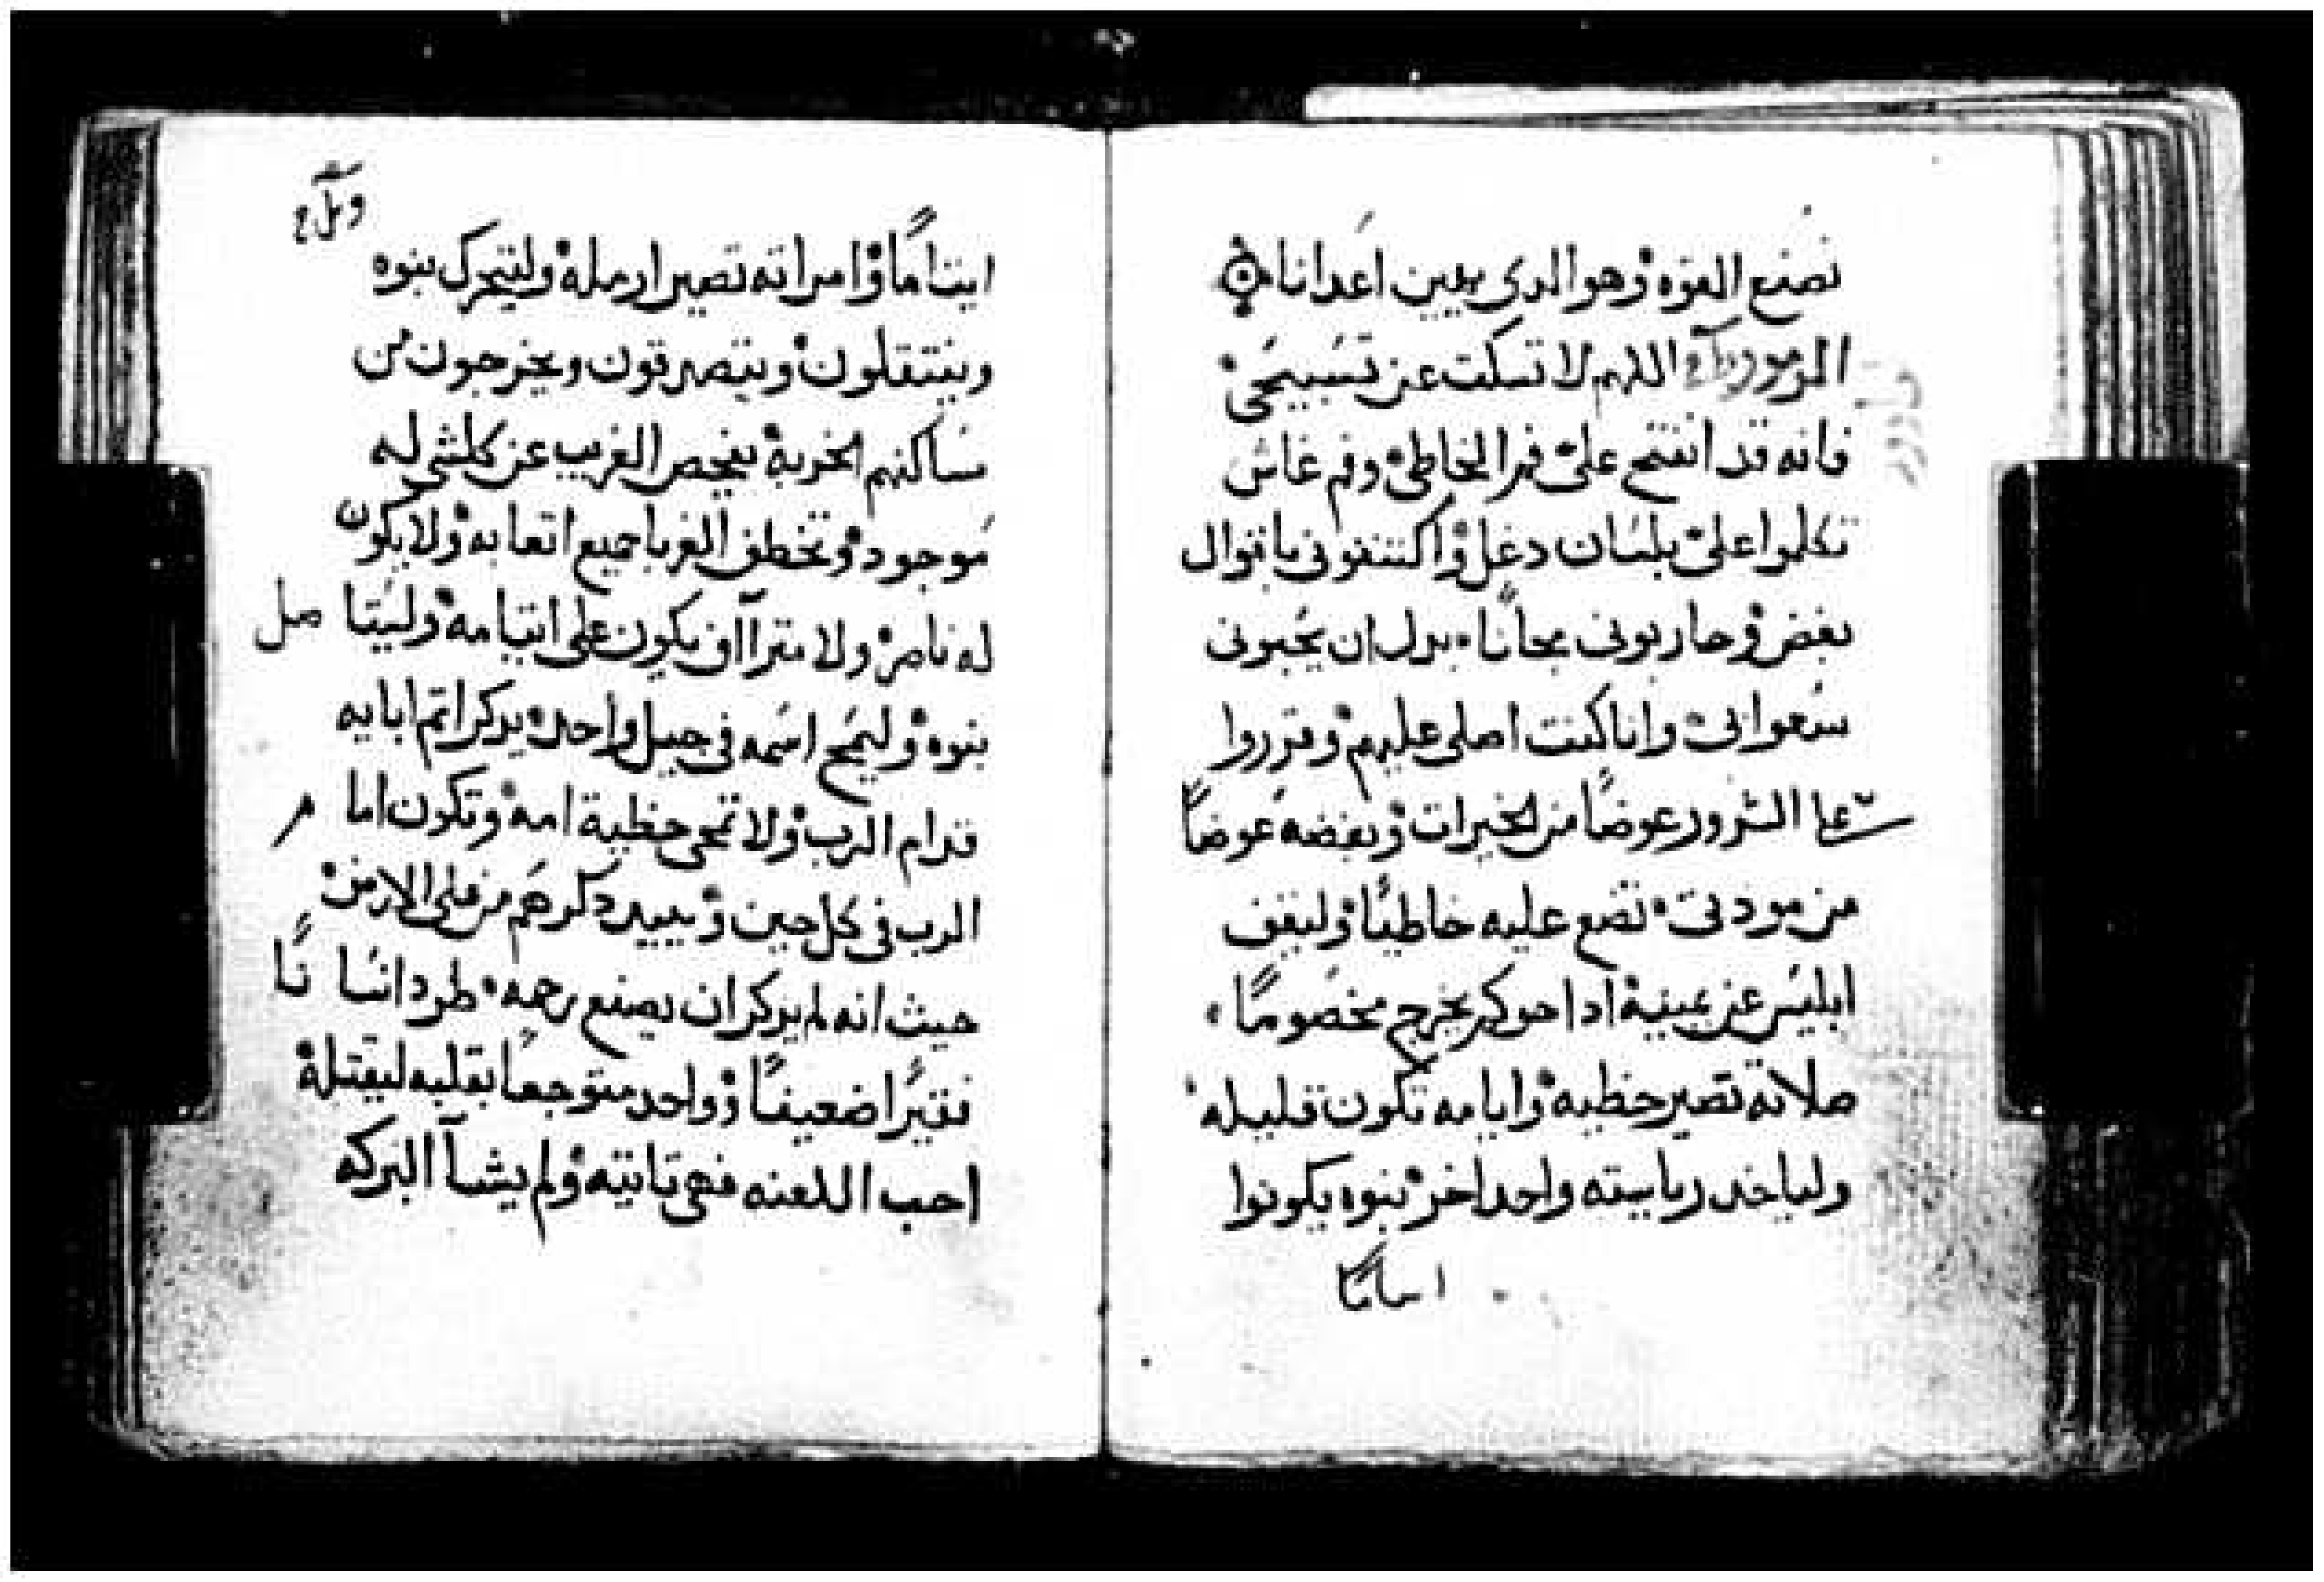 نصنع القوه وهو الدى يهين اعدانا
المزمور اللهم لا تسكت عن تسبيحى
فانه قد انفتح على فم الخاطى وفم غاش
تكلموا على بلسان دغل واكتنفونى باقوال
بغض وحاربونى مجاناً بدل ان يحبونى
سعوا بى وانا كنت اصلى عليهم وقرروا
على الشرور عوضاً من الخيرات وبغضه عوضاً
من مودتى تضع عليه خاطياً وليقف
ابليس عن يمينه ادا حوكم يخرج مخصوماً
صلاته تصير خطيه وايامه تكون قليله
ولياخد رياسته واحد اخر بنوه يكونوا
ايتاماً
ايتاماً وامراته تصير ارمله وليتحرك بنوه
وينتقلون ويتصدقون ويخرجون من
مساكنهم الخربة يفحص الغريب عن كلشى له
موجود وتخطف الغربا جميع اتعابه ولا يكون
له ناصر ولا متراآف يكون على ايتامه وليستاصل
بنوه وليمح اسمه فى جيل واحد يدكر اتم ابايه
قدام الرب ولا تمحى خطية امه وتكون امام
الرب فى كل حين ويبيد دكرهم من على الارض
حيث انه لم يدكر ان يصنع رحمه طرد انساناً
فقيرا ضعيفاً وواحد متوجعاً بقلبه ليقتله
احب اللعنه فهى تاتيه ولم يشآ البركه